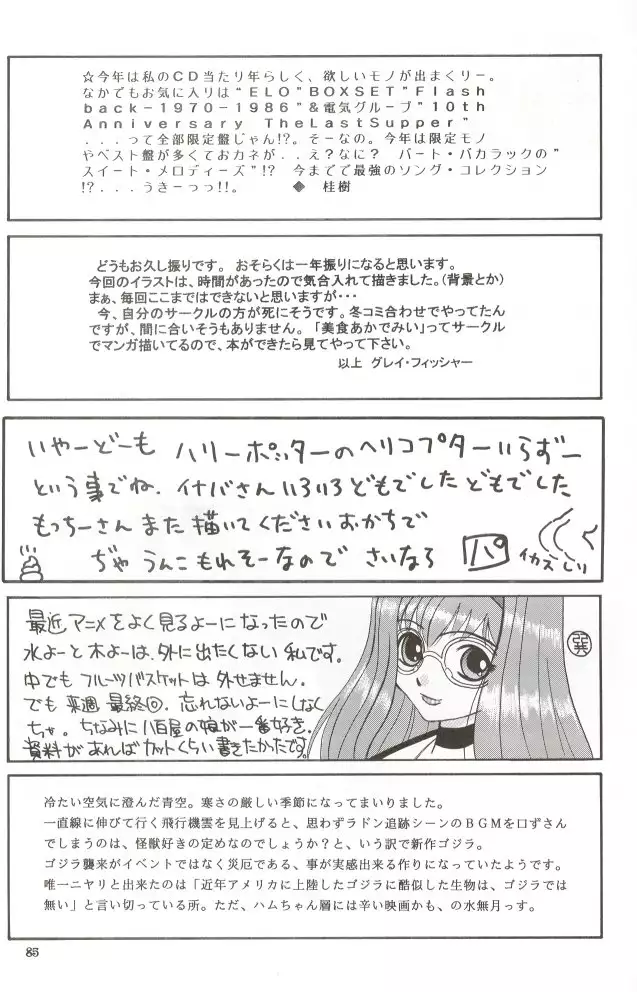 ☆今年は私のCD当たり年らしく、欲しいモノが出まくりー。
なかでもお気に入りは“ELO”BOXSET”Flash
back-1970-1986”&電気グループ”10th
Anniversary TheLastSupper”
...って全部限定盤じゃん!?。そーなの。今年は限定モノ
やベスト盤が多くておカネが..え?なに? バート・バカラックの”
スイート・メロディーズ”!? 今までで最強のソング・コレクション
!?...うきーっっ!!。 ◆ 桂樹
どうもお久し振りです。おそらくは一年振りになると思います。
今回のイラストは、時間があったので気合入れて描きました。(背景とか)
まぁ、毎回ここまではできないと思いますが・・・
今、自分のサークルの方が死にそうです。冬コミ合わせでやってたん
ですが、間に合いそうもありません。「美食あかでみい」ってサークル
でマンガ描いてるので、本ができたら見てやって下さい。
以上 グレイ・フィッシャー
いやーどーも ハリーポッターのヘリコプターいらずー
という事でね. イナバさんいろいろどもでしたどもでした
もっちーさんまた描いてくださいおかちで
ぢゃ うんこもれそーなので さいなら パ イカズしり
最近アニメをよく見るよーになったので
水よーと木よーは、外に出たくない私です。
中でもフルーツバスケットは外せません.
でも来週最終回. 忘れないよーにしなく
ちゃ。ちなみに八百屋の娘が一番好き.
資料があればカットくらい書きたかったです。
冷たい空気に澄んだ青空。寒さの厳しい季節になってまいりました。
一直線に伸びて行く飛行機雲を見上げると、思わずラドン追跡シーンのBGMを口ずさん
でしまうのは、怪獣好きの定めなのでしょうか?と、いう訳で新作ゴジラ。
ゴジラ襲来がイベントではなく災厄である、事が実感出来る作りになっていたようです。
唯一ニヤリと出来たのは「近年アメリカに上陸したゴジラに酷似した生物は、ゴジラでは
無い」と言い切っている所。ただ、ハムちゃん層には辛い映画かも、の水無月っす。
85